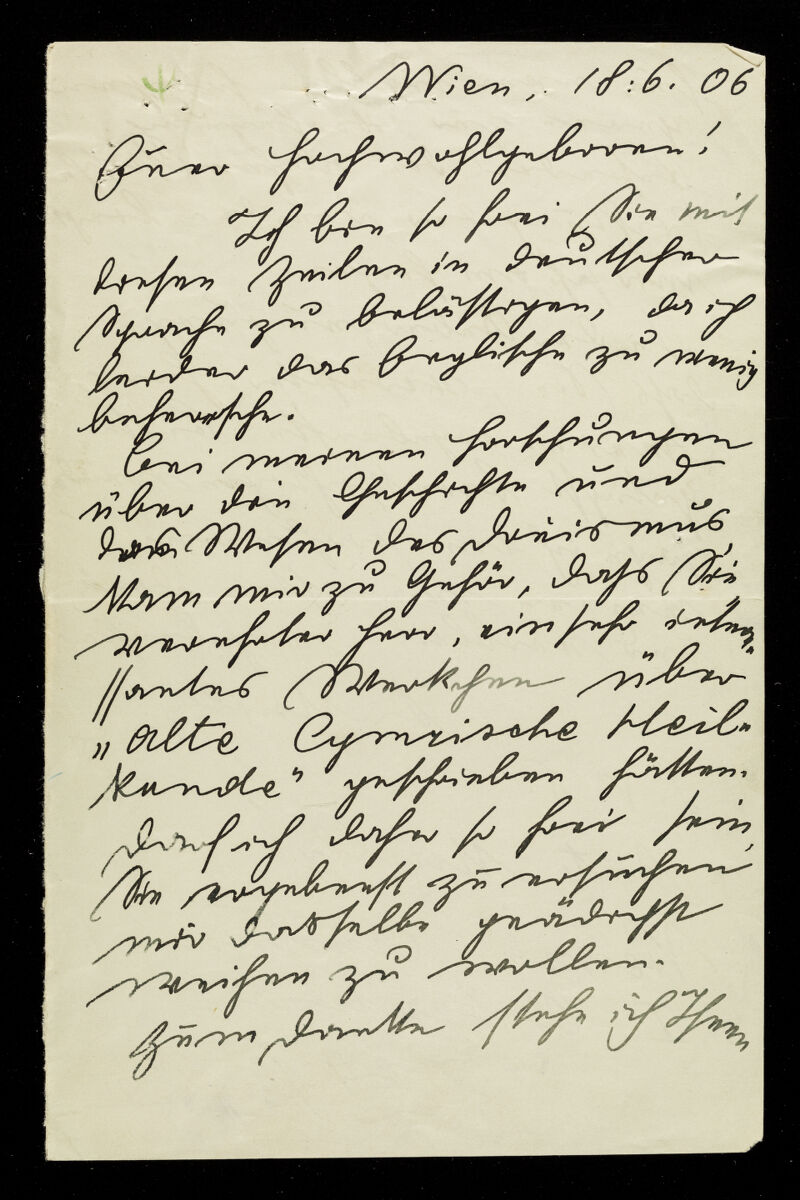 Wien, 18:6. 06
Euer Hochwohlgeboren!
Ich bin so frei Sie mit
diesen Zeilen in deutscher
Sprache zu belästigen, da ich
leider das Englische zu wenig
beherrsche.
Bei meinen Forschungen
über die Geschichte und
das Wesen des Druismus,
kam mir zu Gehör, dass Sie
verehrter Herr, ein sehr inter=
ssantes Werkchen über
„Alte Cymrische Heil=
kunde" geschrieben hätten.
Darf ich daher so frei sein,
Sie ergebenst zu ersuchen
mir dasselbe
weihen zu wollen.
Zum Danke stehe ich Ihnen